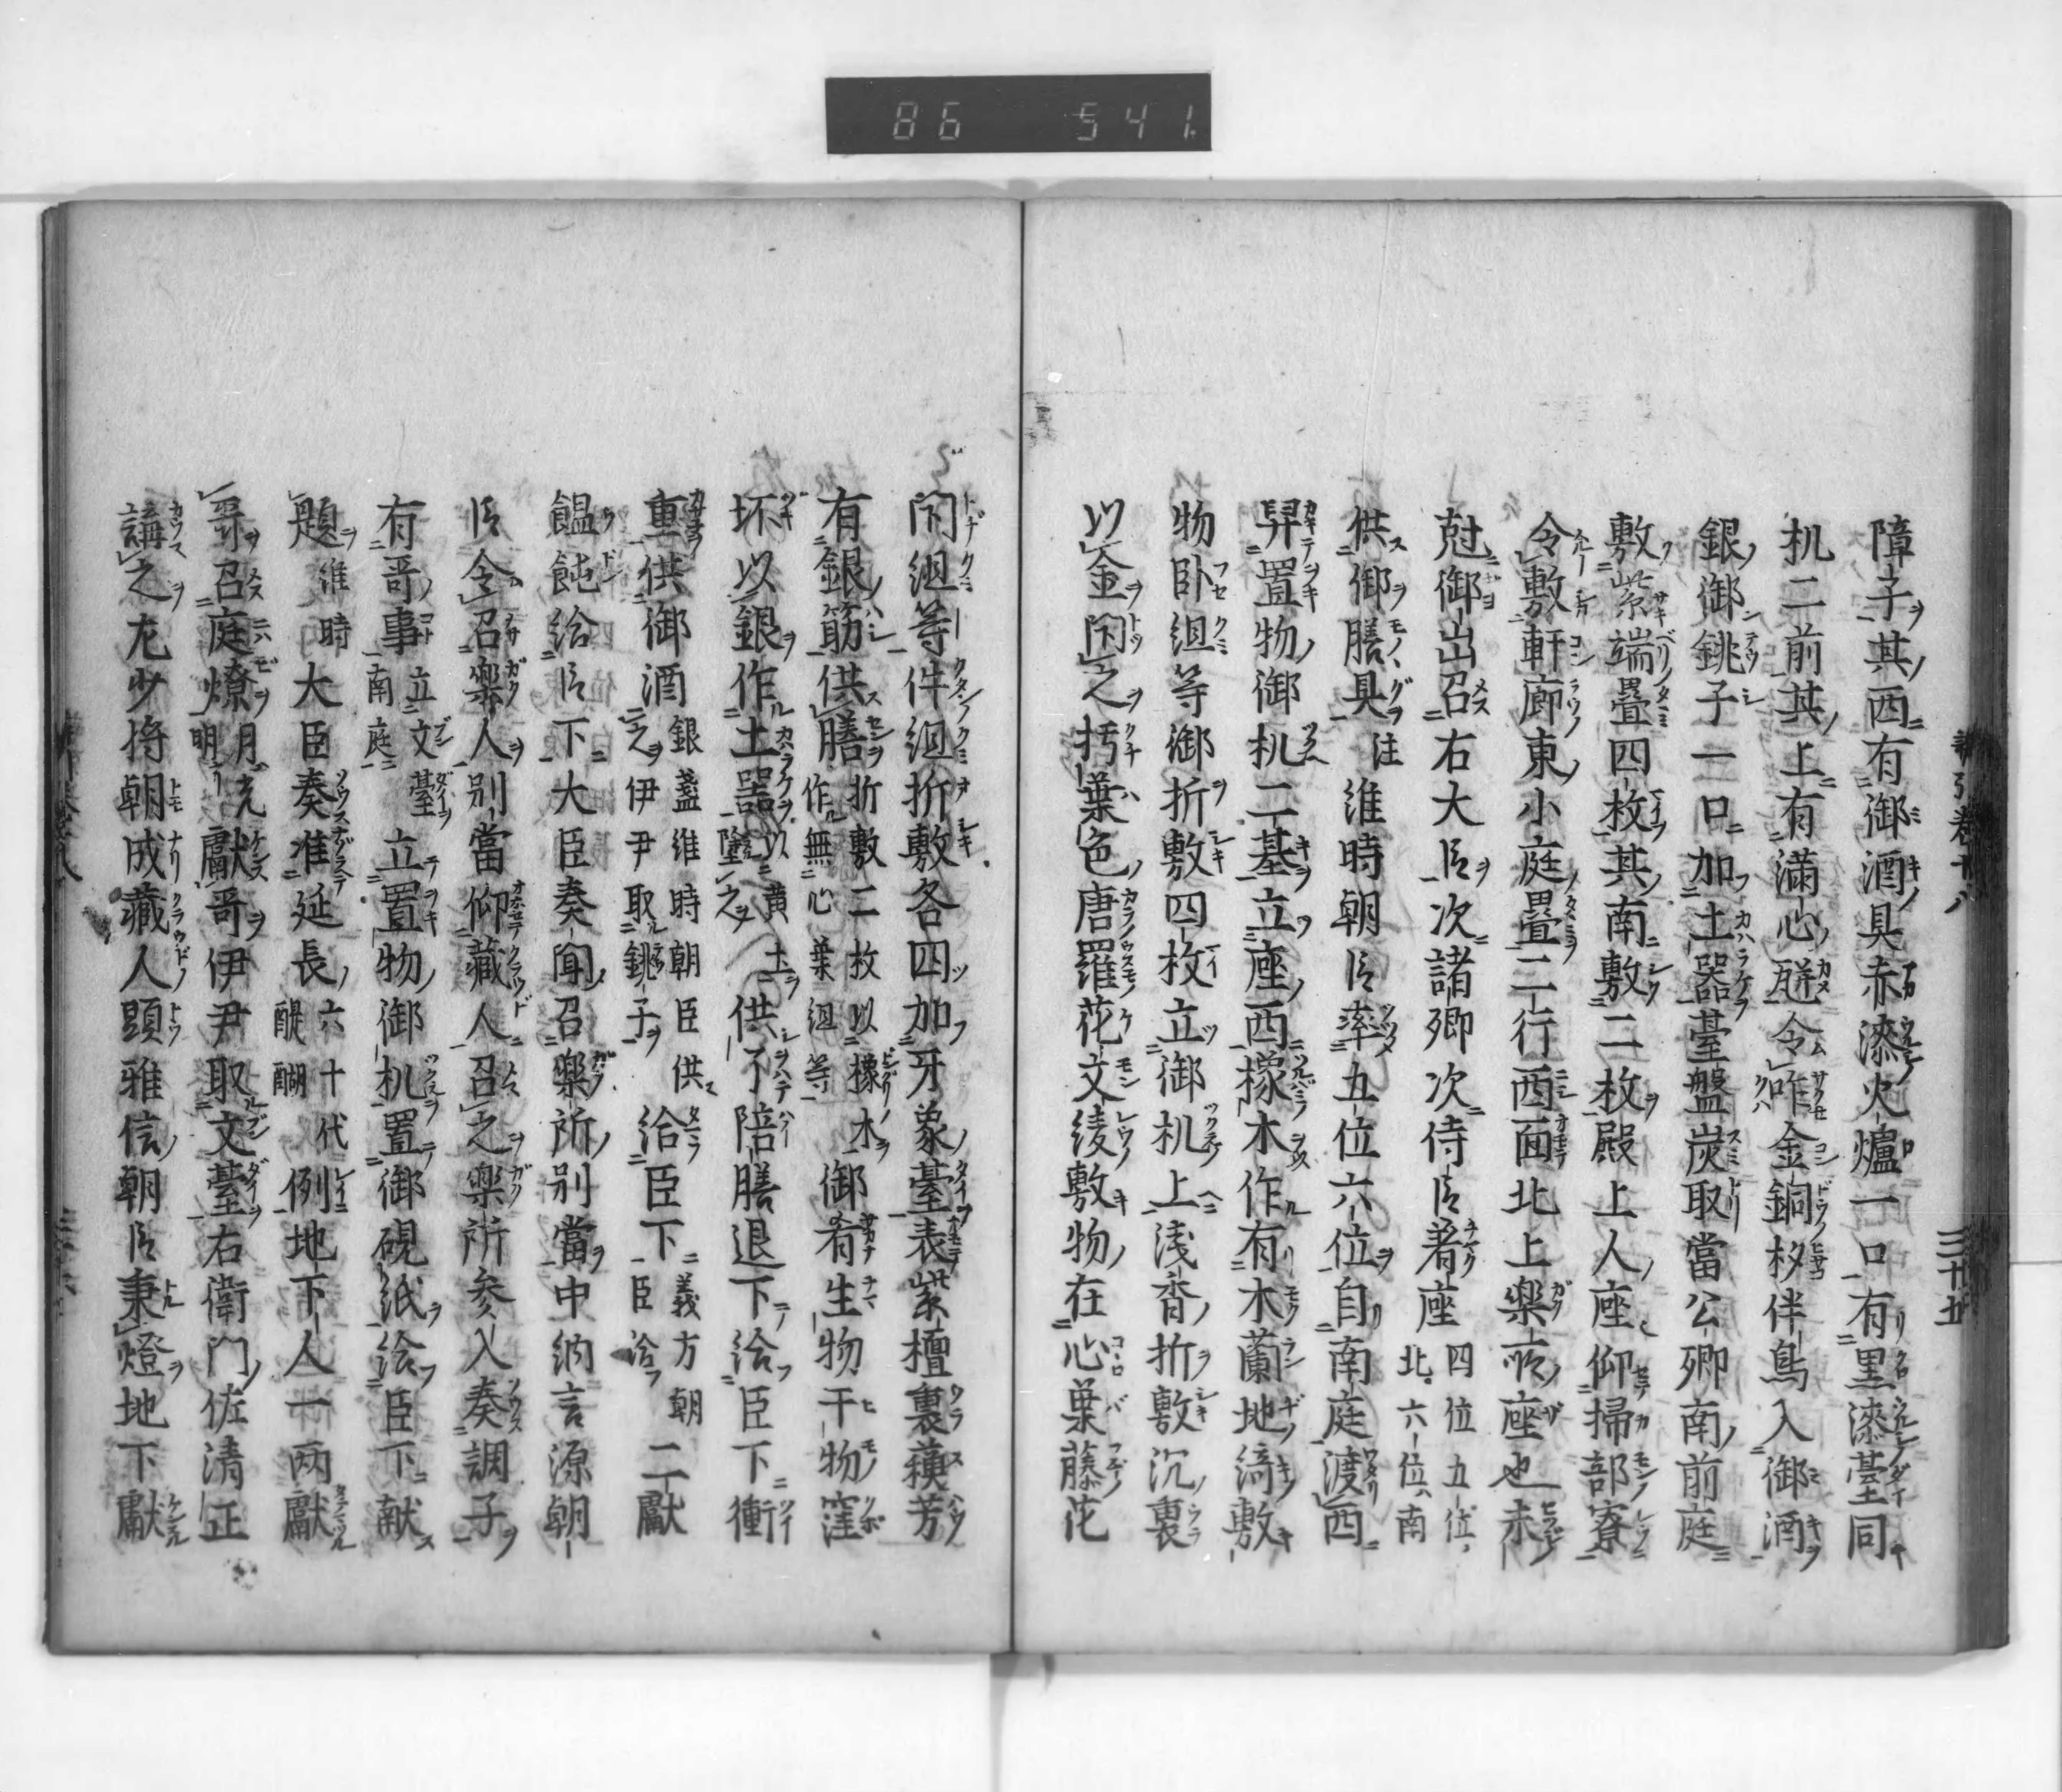 86 541
障子其西有御酒具赤漆火爐一口有黒漆臺同
机二前其上有滿心瓫令咋金銅杓伴鳥入御酒
銀御銚子一口加土器臺盤炭取當公卿南前庭
敷紫端畳四枚其南敷二枚殿上人座仰掃部寮
令敷軒廊東小庭畳二行西面北上樂所座也未
尅御出召右大臣次諸卿次侍臣着座四位五位
北六位南
供御膳具往維時朝臣率五位六位自南庭渡西
舁置物御机二基立座西橡木作有木蘭地綺敷
物卧組等御折敷四枚立御机上浅香折敷沉裏
以金閇之朽葉色唐羅花文綾敷物在心葉藤花
閇組等件組折敷各四加牙象臺表紫檀裏蘓芳
有銀筯供膳折敷二枚以橡木
作無心葉組等御肴生物干物窪
坏以銀作土器以黄土
墜之供了陪膳退下給臣下衝
重供御酒銀盞維時朝臣供
之伊尹取銚子給臣下義方朝
臣給二獻
饂飩給臣下大臣奏聞召樂所別當中納言源朝
臣令召樂人別當仰藏人召之樂所参入奏調子
有哥事立文臺
南庭立置物御机置御硯紙給臣下献
題維時大臣奏准延長六十代
醍醐例地下人一両獻
哥召庭燎月光
明獻哥伊尹取文臺右衛門佐清正
講之左少将朝成藏人頭雅信朝臣秉燈地下獻
三十五